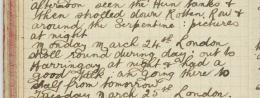 afternoon seen the Hun tanks &
then strolled down Rotten Row &
around the Serpentine: pictures
at night
Monday March 24th London
Stroll round during day; out to
Harringay at night & had a
good talk: am going there to
from tomorrow
Tuesday March 25th London.